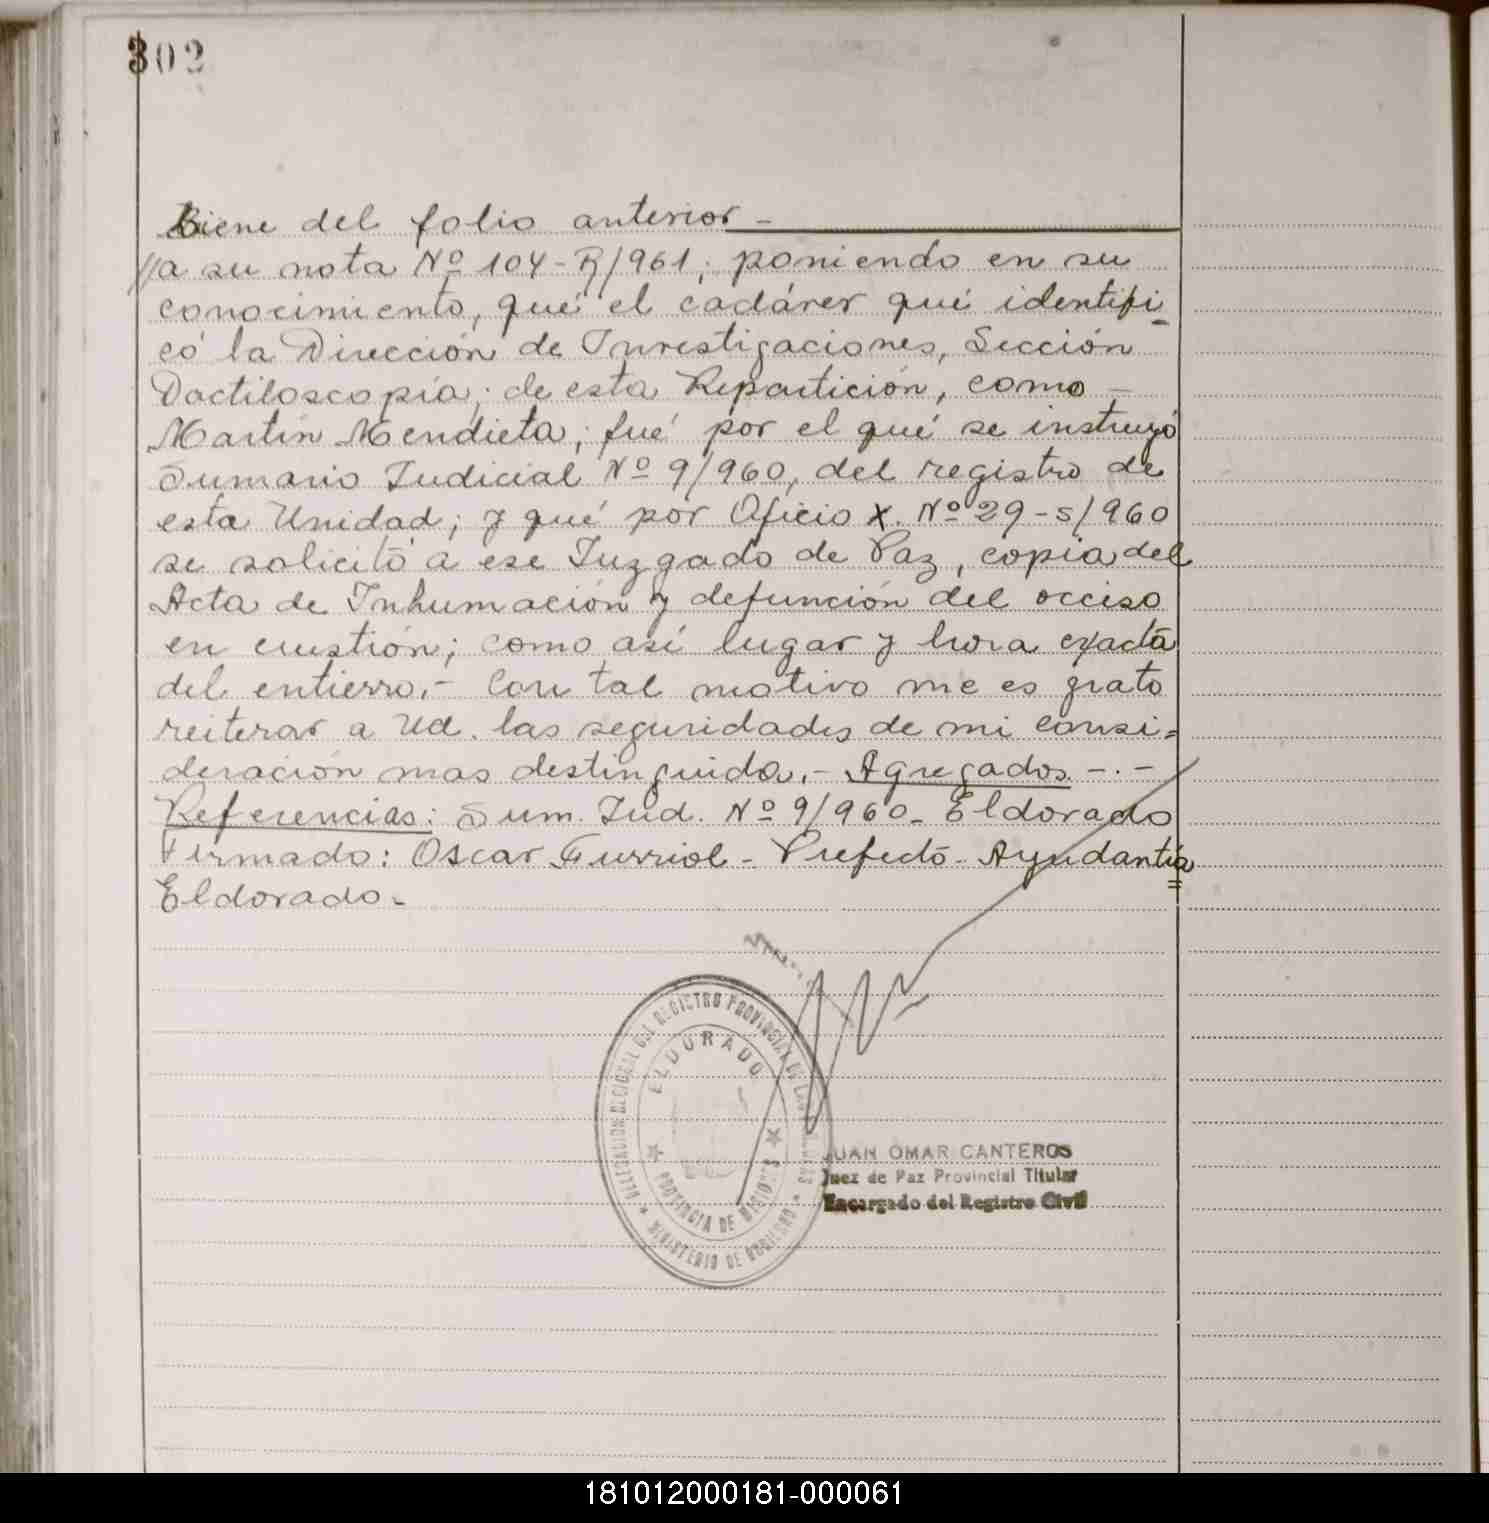 302
Biene del folio anterior -
//a su nota Nº 104-R/961; poniendo en su
conocimiento, qué el cadáver qué identifi-
có la Dirección de Investigaciones, Sección
Dactiloscopía; de esta Repartición, como -
Martín Mendieta; fué por el qué se instruyó
Sumario Judicial Nº 9/960, del registro de
esta Unidad; y qué por Oficio X. Nº 29-S/960
se solicitó a ese Juzgado de Paz, copia del
Acta de Inhumación y defunción del occiso
en cuestión; como así lugar y hora exacta
del entierro.- Con tal motivo me es grato
reiterar a Ud. las seguridades de mi consi=
deración mas destinguida.- Agregados -.-
Referencias: Sum. Jud. Nº 9/960- Eldorado
Firmado: Oscar Furriol - Prefecto - Ayudantía
Eldorado-
DELEGACION DECIONAL DEL REGISTRO PROVINCIAL DE LAS
ELDORADO
PROVINCIA DE MISIONES
MINISTERIO DE GOBIERNO
JUAN OMAR CANTEROS
Juez de Paz Provincial Titular
Encargado del Registro Civil
181012000181-000061